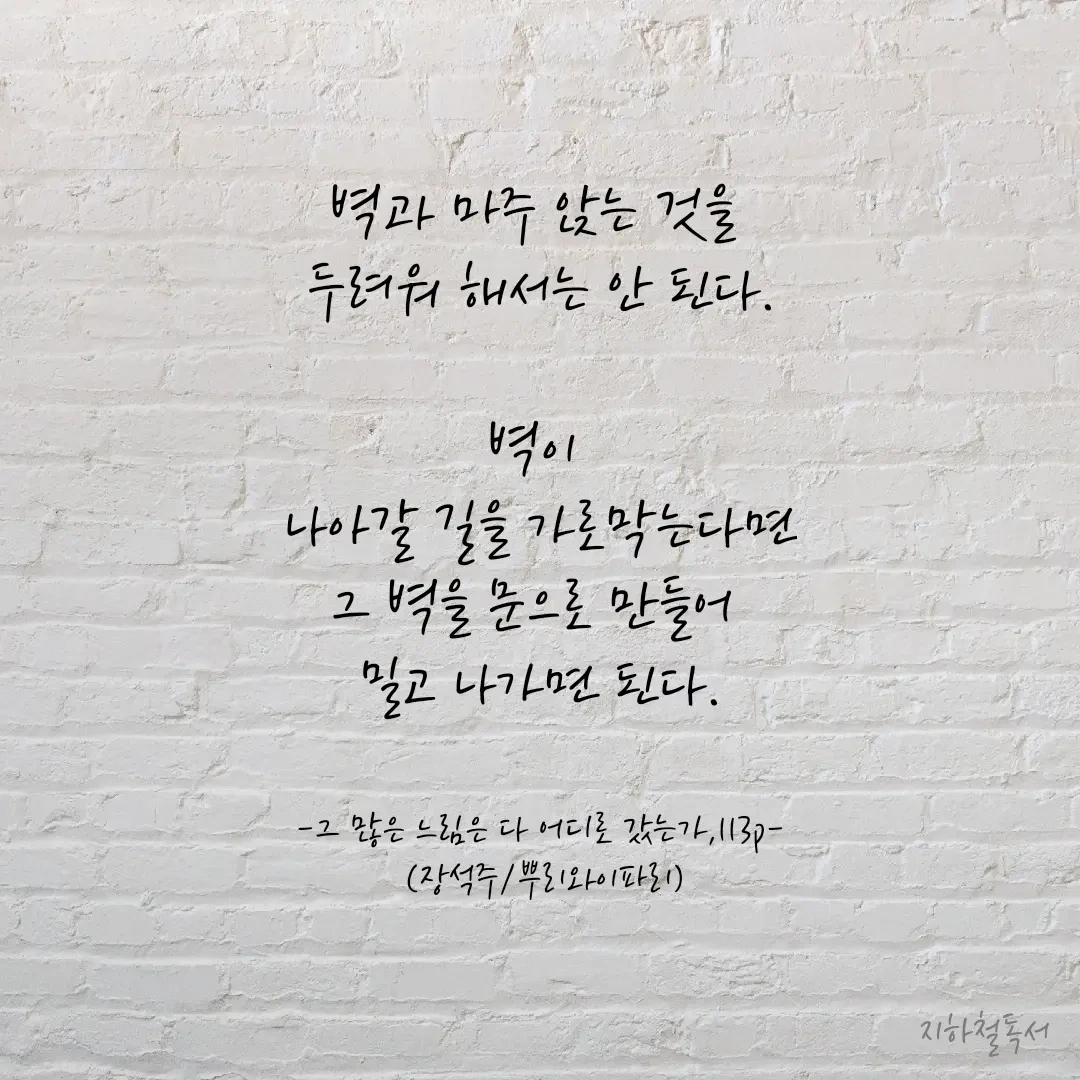 벽과 마주 앉는 것을
두려워 해서는 안 된다.
벽이
나아갈 길을 가로막는다면
그 벽을 문으로 만들어
밀고 나가면 된다.
-그 많은 느림은 다 어디로 갔는가,113p-
(장석주/뿌리와이파리)
지하철독서